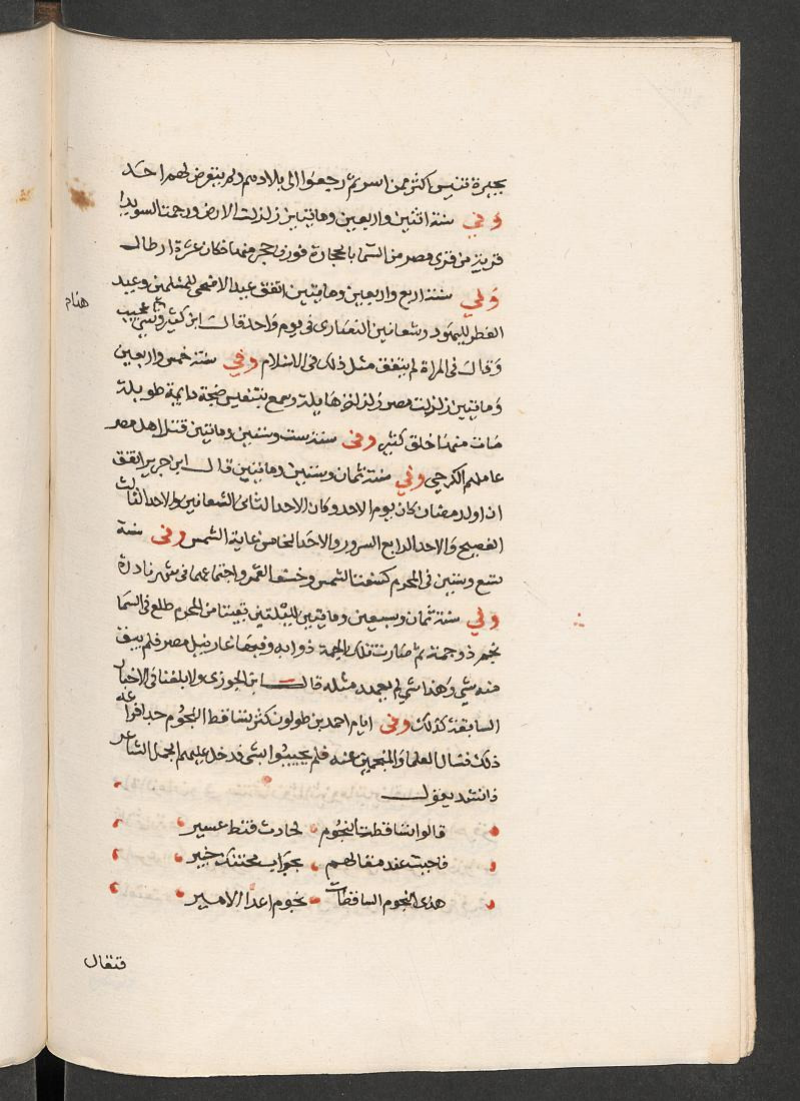 بحيرة تنيس اكثر ممن اسر ثم رجعوا الى بلادهم ولم يتعرض لهم احد
وفي سنة اثنين واربعين ومايتين زلزلت الارض ورجمت السويدا
قرية من قرى مصر من السما بالحجارة فوزن حجر منها فكان عشرة ارطال
وفي سنة اربع واربعين ومايتين اتفق عيد الاضحى للمسلمين وعيد
الفطر لليهود وشعانين النصارى في يوم واحد قال ابن كثير وهذا عجيب
وقال في المراة لم يتفق مثل ذلك في الاسلام وفي سنة خمس واربعين
ومايتين زلزلت مصر وسمع بتنيس ضجة دايمة طويلة
مات منها خلق كثير وفي سنة ست وستين ومايتين قتل اهل مصر
عاملهم الكرخي وفي سنة ثمان وستين ومايتين قال ابن جرير اتفق
ان اول رمضان كان يوم الاحد وكان الاحد الثاني الشعانين والاحد الثالث
الفصح والاحد الرابع السرور والاحد الخامس غاية الشمس وفي سنة
تسع وستين في المحرم كسفت الشمس وخسف القمر واجتماعهما في شهر نادرة
وفي سنة ثمان وسبعين ومايتين لليلتين بقيتا من المحرم طلع في السما
نجم ذو جمة ثم صارت تلك الجمة ذوابة وفيها غار نيل مصر فلم يبق
منه شي وهذا شي لم يعهد مثله قال ابن الجوزي ولا بلغنا في الاخبار
السابقة كذلك وفي ايام احمد بن طولون كثر تساقط النجوم حدا فراعه
ذلك فسال العلما والمنجمين عنه فلم يجيبوا بشي فدخل عليهم الجمل الشاعر
فانشد يقول
قالوا تساقطت النجوم لحادث فقط عسير
فاجبت عند مقالهم بجواب محتنك خبير
هذى النجوم الساقطات نجوم اعداء الامير
فتفال